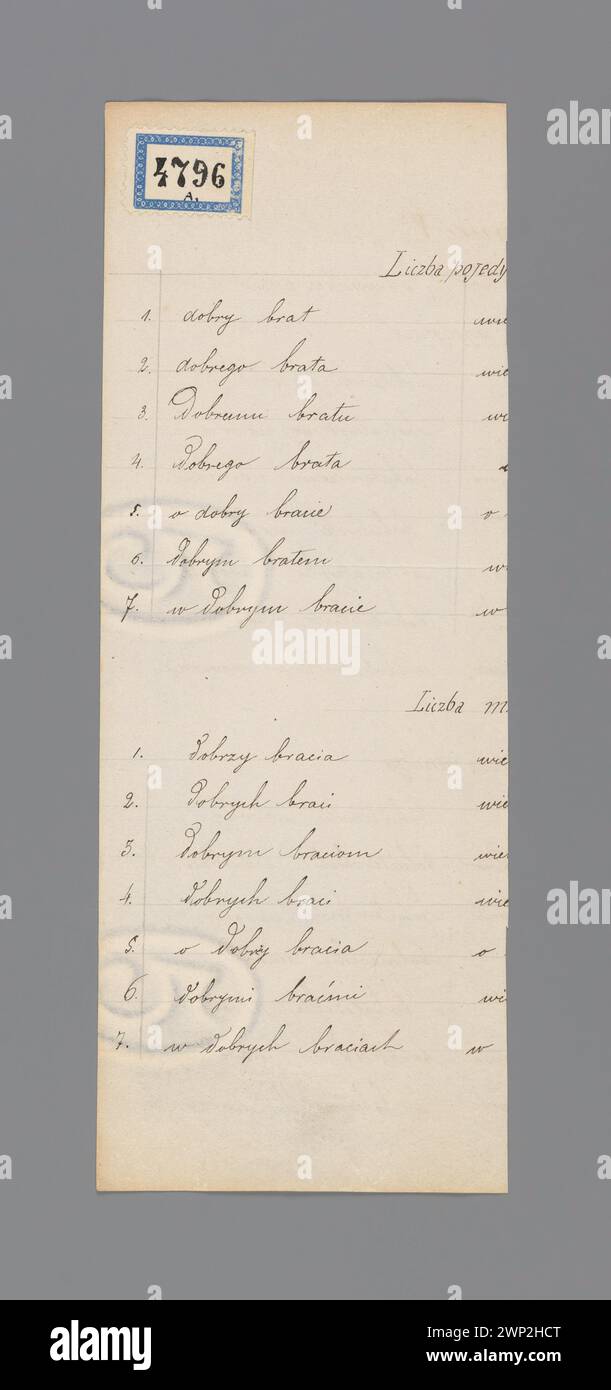 4796
A.
Liczba pojedy
1. dobry brat wie
2. dobrego brata wie
3. Dobremu bratu wi
4. Dobrego brata
5. o dobry bracie o
6. dobrym bratem wi
7. w dobrym bracie w
Liczba m.
1. dobrzy bracia wie
2. dobrych braci wie
3. Dobrym braciom wie
4. dobrych braci wie
5. o dobrzy bracia o
6. dobrymi braćmi wi
7. w dobrych braciach w
alamy
alamy
Image ID: 2WP2HCT
www.alamy.com